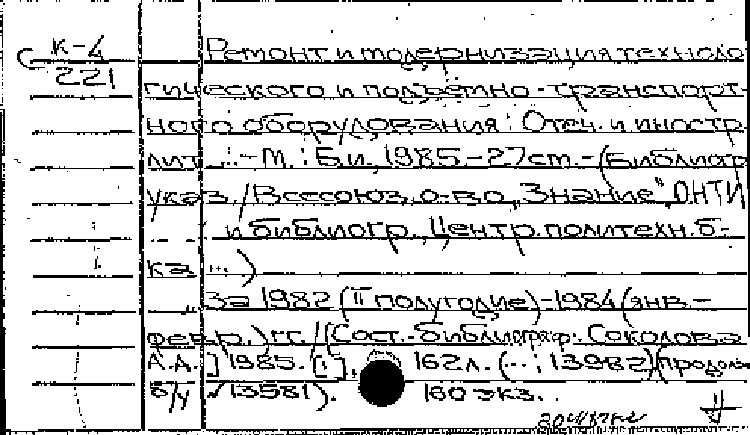 К-4
221
Ремонт и модернизация техноло
гического и подъёмно-транспорт-
ного оборудования: Отеч. и иностр.
лит...:-М.: Б.и., 1985.-27см.-(Библиогр.
указ./Всесоюз. о-во „Знание", ОНТИ
и библиогр., Центр. политехн. б-
ка ...)
За 1982 (II полугодие)-1984 (янв.-
февр.) гг. /[Сост.-библиограф. Соколова
А.А.] 1985. [1], 162л. (...; 13982) (продолж.
б/у √13581). 160 экз.